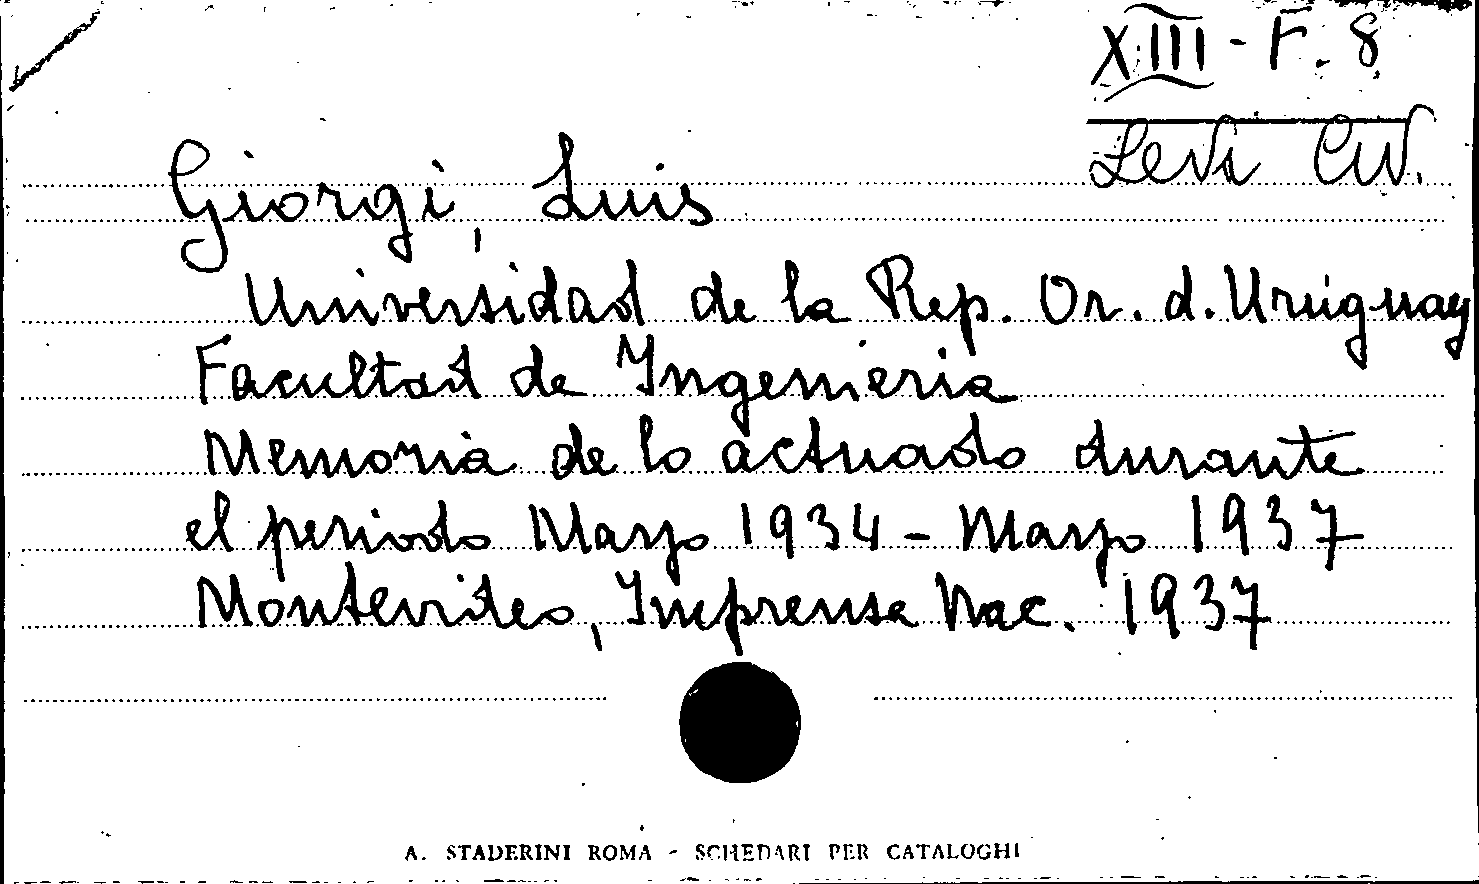 XIII - F. 8
Levi Civ.
Giorgi, Luis
Universidad de la Rep. Or. d. Uruguay
Facultad de Ingenieria
Memoria de lo actuado durante
el periodo Marzo 1934 - Marzo 1937
Montevideo, Imprensa Nac. 1937
A. STADERINI ROMA - SCHEDARI PER CATALOGHI